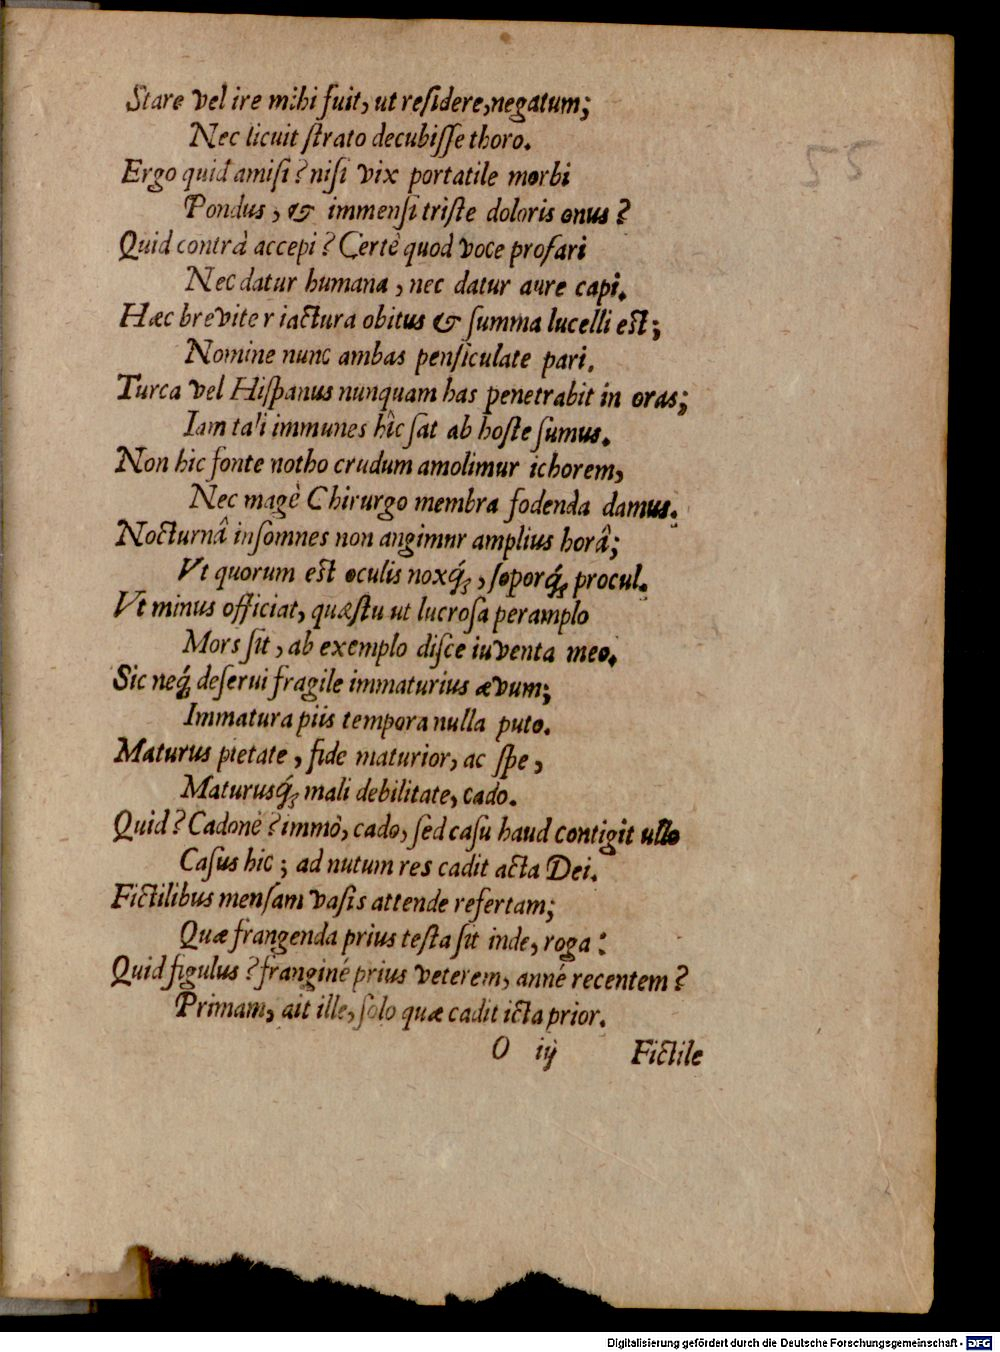 55
Stare vel ire mihi fuit, ut reſidere, negatum;
Nec licuit ſtrato decubiſſe thoro.
Ergo quid amiſi? niſi vix portatile morbi
Pondus, & immenſi triſte doloris onus?
Quid contrà accepi? Certè quod voce profari
Nec datur humana, nec datur aure capi.
Hæc breviter iactura obitus & ſumma lucelli eſt;
Nomine nunc ambas penſiculate pari.
Turca vel Hiſpanus nunquam has penetrabit in oras;
Iam tali immunes hîc ſat ab hoſte ſumus.
Non hic fonte notho crudum amolimur ichorem,
Nec magè Chirurgo membra fodenda damus.
Nocturnâ inſomnes non angimur amplius horâ;
Vt quorum eſt oculis noxq́ꝫ, ſoporq́ꝫ procul.
Vt minus officiat, quæſtu ut lucroſa peramplo
Mors ſit, ab exemplo diſce iuventa meo.
Sic neq́ꝫ deſerui fragile immaturius ævum;
Immatura piis tempora nulla puto.
Maturus pietate, fide maturior, ac ſpe,
Maturusq́ꝫ mali debilitate, cado.
Quid? Cadonè? immò, cado, ſed caſu haud contigit ullo
Caſus hic; ad nutum res cadit acta Dei.
Fictilibus menſam vaſis attende refertam;
Quæ frangenda prius teſta ſit inde, roga:
Quid figulus? franginé prius veterem, anné recentem?
Primam, ait ille, ſolo quæ cadit icta prior.
O iij Fictile
Digitalisierung gefördert durch die Deutsche Forschungsgemeinschaft - DFG